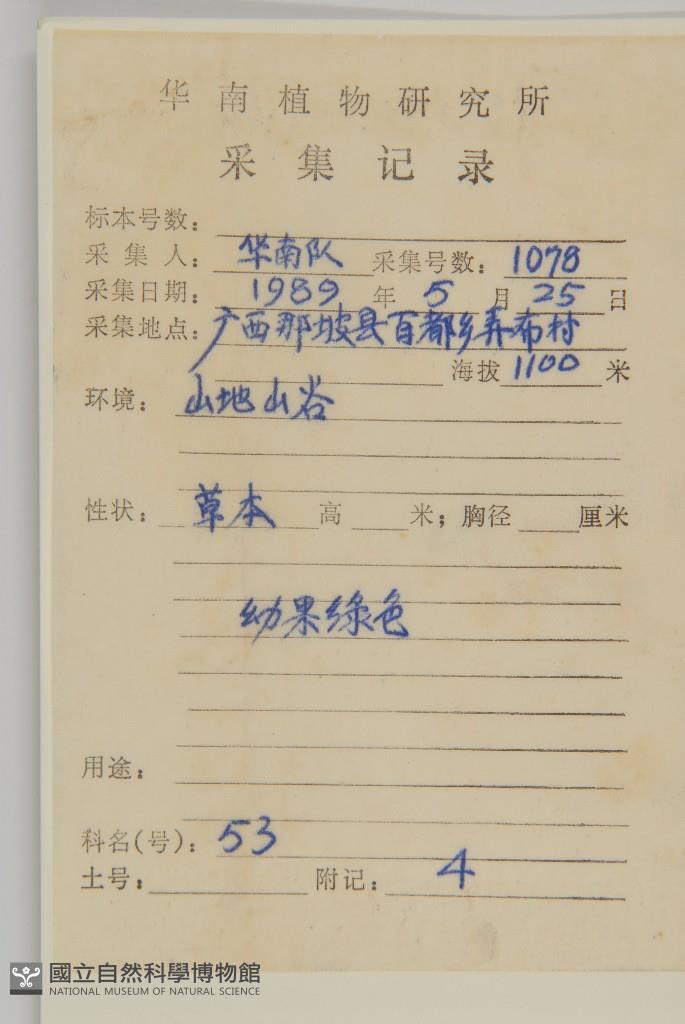 华南植物研究所
采集记录
标本号数：
采集人：华南队 采集号数：1078
采集日期：1989年5月25日
采集地点：广西那坡县百都乡弄布村
海拔1100米
环境：山地山谷
性状：草本 高 米；胸径 厘米
幼果绿色
用途：
科名(号)：53
土号： 附记：4
國立自然科學博物館
NATIONAL MUSEUM OF NATURAL SCIENCE